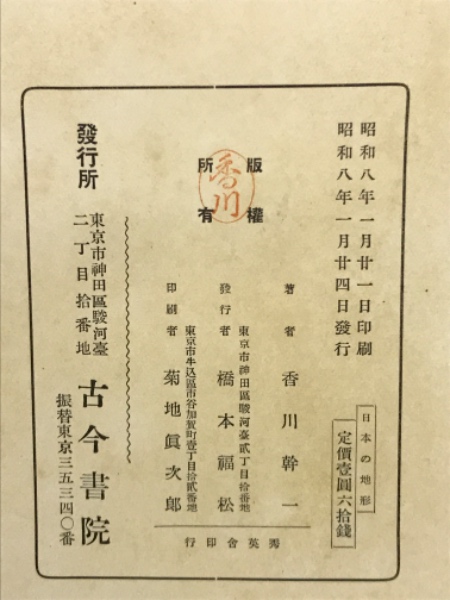 昭和八年一月廿一日印刷
昭和八年一月廿四日發行
日本の地形
定價壹圓六拾錢
版權
所有
香川
著者 香川幹一
東京市神田區駿河臺貳丁目拾番地
發行者 橋本福松
東京市牛込區市谷加賀町壹丁目拾貳番地
印刷者 菊地眞次郎
秀英舍印行
發行所
東京市神田區駿河臺
二丁目拾番地
古今書院
振替東京三五三四〇番